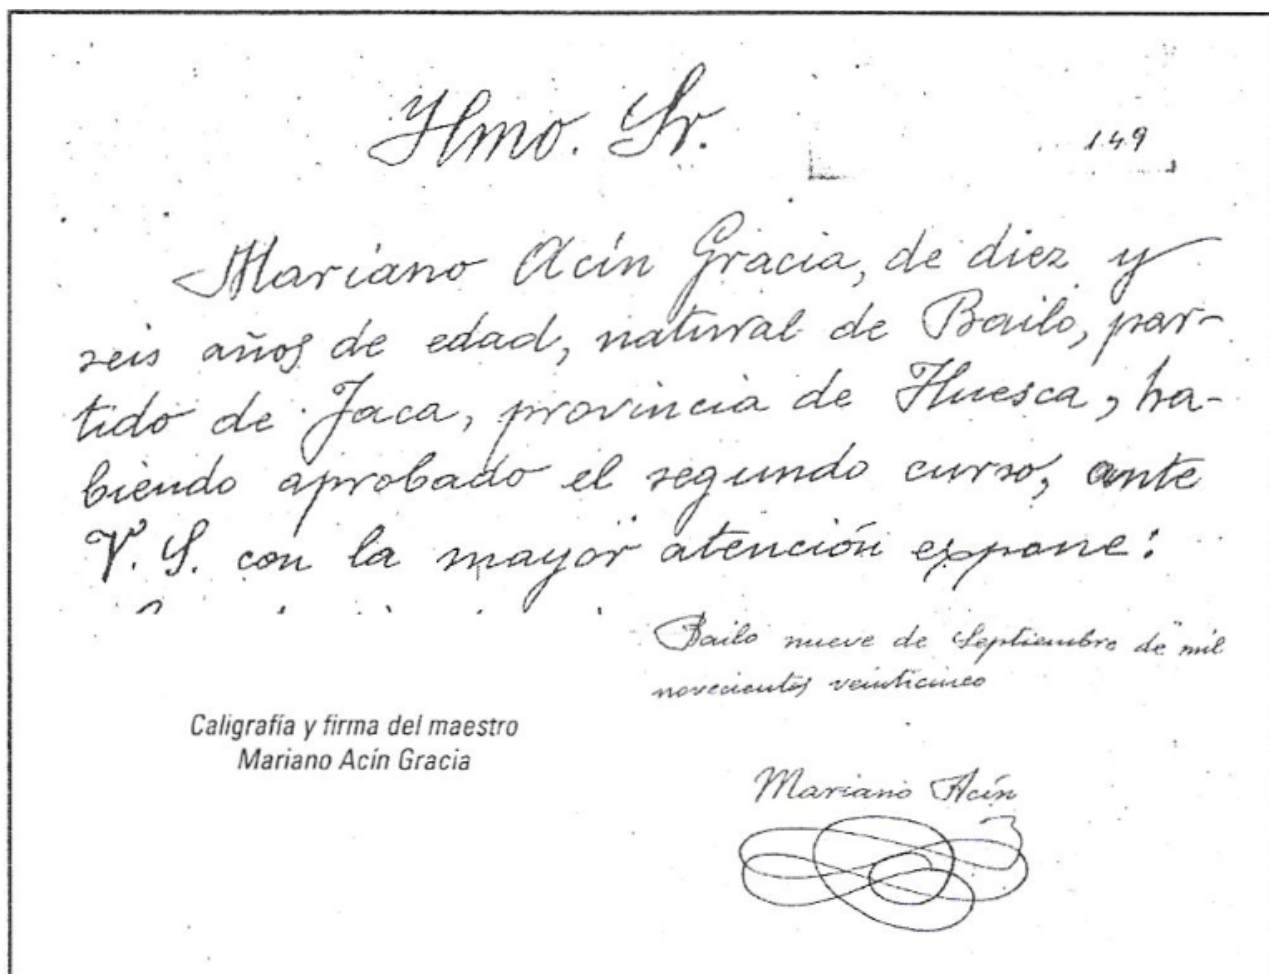 Ylmo. Sr.
149
Mariano Acín Gracia, de diez y
seis años de edad, natural de Bailo, par-
tido de Jaca, provincia de Huesca, ha-
biendo aprobado el segundo curso, ante
V. S. con la mayor atención expone:
Bailo nueve de Septiembre de mil
novecientos veinticinco
Caligrafía y firma del maestro
Mariano Acín Gracia
Mariano Acín